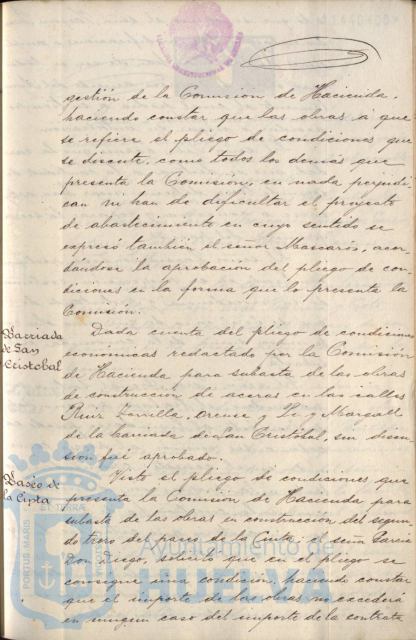 gestión de la Comisión de Hacienda,
haciendo constar que las obras a que
se refiere el pliego de condiciones que
se discute, como todos los demás que
presenta la Comisión, en nada perjudi-
can ni han de dificultar el proyecto
de abastecimiento en cuyo sentido se
expresó también el señor Mascarós, acor-
dándose la aprobación del pliego de con-
diciones en la forma que lo presenta la
Comisión.
Barriada
de San
Cristobal
Dada cuenta del pliego de condiciones
económicas redactado por la Comisión
de Hacienda para subasta de las obras
de construcción de aceras en las calles
Ruiz Zorrilla, Orense y Pi y Margall
de la barriada de San Cristóbal, sin discu-
sión fué aprobado.
Paseo de
la Cinta
Visto el pliego de condiciones que
presenta la Comisión de Hacienda para
subasta de las obras en construcción del segun-
do trozo del paseo de la Cinta; el señor García
Don Diego, solicitó que en el pliego se
consigne una condición, haciendo constar
que el importe de las obras no excederá
en ningún caso del importe de la contrata
PORTUS MARIS
TERRAE
Ayuntamiento de
HUELVA